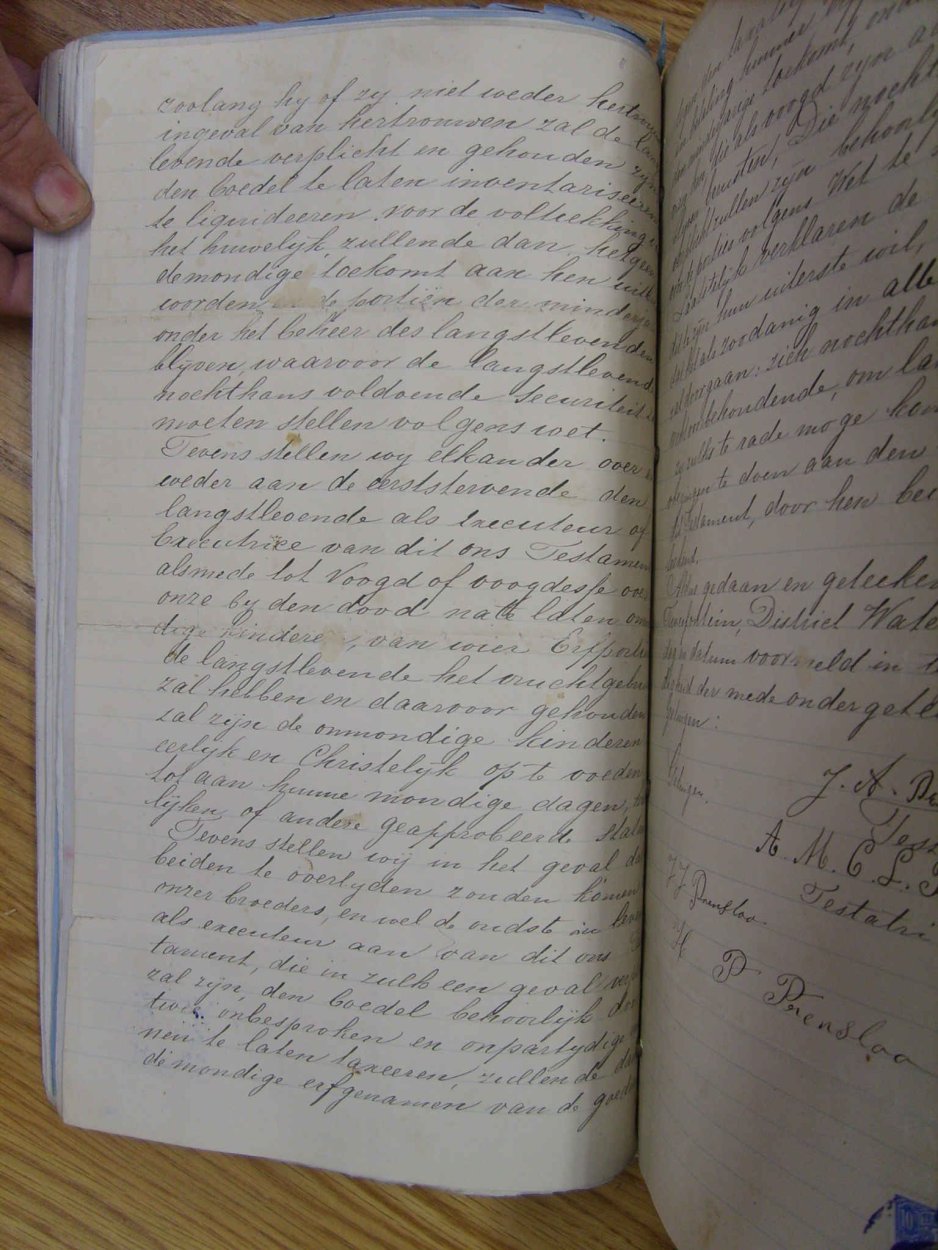 zoolang hy of zy niet weder hertrouw
ingeval van hertrouwen zal de lan
levende verplicht en gehouden zyn
den boedel te laten inventariseeren
te liquideeren voor de voltrekking v
het huwelijk, zullende dan, hetgeen
de mondige toekomt aan hen uitke
worden, en de portien der minderja
onder het beheer des langstlevenden
blyven, waarvoor de langstlevend
nochthans voldoende securiteit z
moeten stellen volgens wet.
Tevens stellen wy elkander over e
weder aan de eerststervende den
langstlevende als Executeur of
Executrice van dit ons Testamen
alsmede tot Voogd of voogdesse ove
onze by den dood nate laten onm
dige kindere, van wier Erfportie
de langstlevende het vruchtgebru
zal hebben en daarvoor gehouden
zal zijn de onmondige kinderen
eerlyk en Christelyk op te voeden
tot aan hunne mondige dagen, hu
lijken, of andere geapprobeerde staten
Tevens stellen wij in het geval da
beiden te overlyden zouden komen
onzer broeders, en wel de oudste in leven
als executeur aan van dit ons
tament, die in zulk een geval verp
zal zijn, den boedel behoorlijk door
twee onbesproken en onpartydige
nen te laten taxeeren, zullende da
de mondige erfgenamen van de goede
toekomt,
als voogd zyn a
Die nocht
zullen zyn behoorly
volgens Wet te
verklaren de
zijn hun uiterste wil,
als zoodanig in alle
doorgaan: zich nochthan
behoudende, om la
te rade moge kom
te doen aan den
Testament, door hen bei
Aldus gedaan en geteeken
District Wate
en datum voormeld in t
der mede ondergete
getuigen:
Getuigen.
J. A. Pr
Tes
A. M. C. L. P
Testatri
J J Prensloo.
H P Prensloo